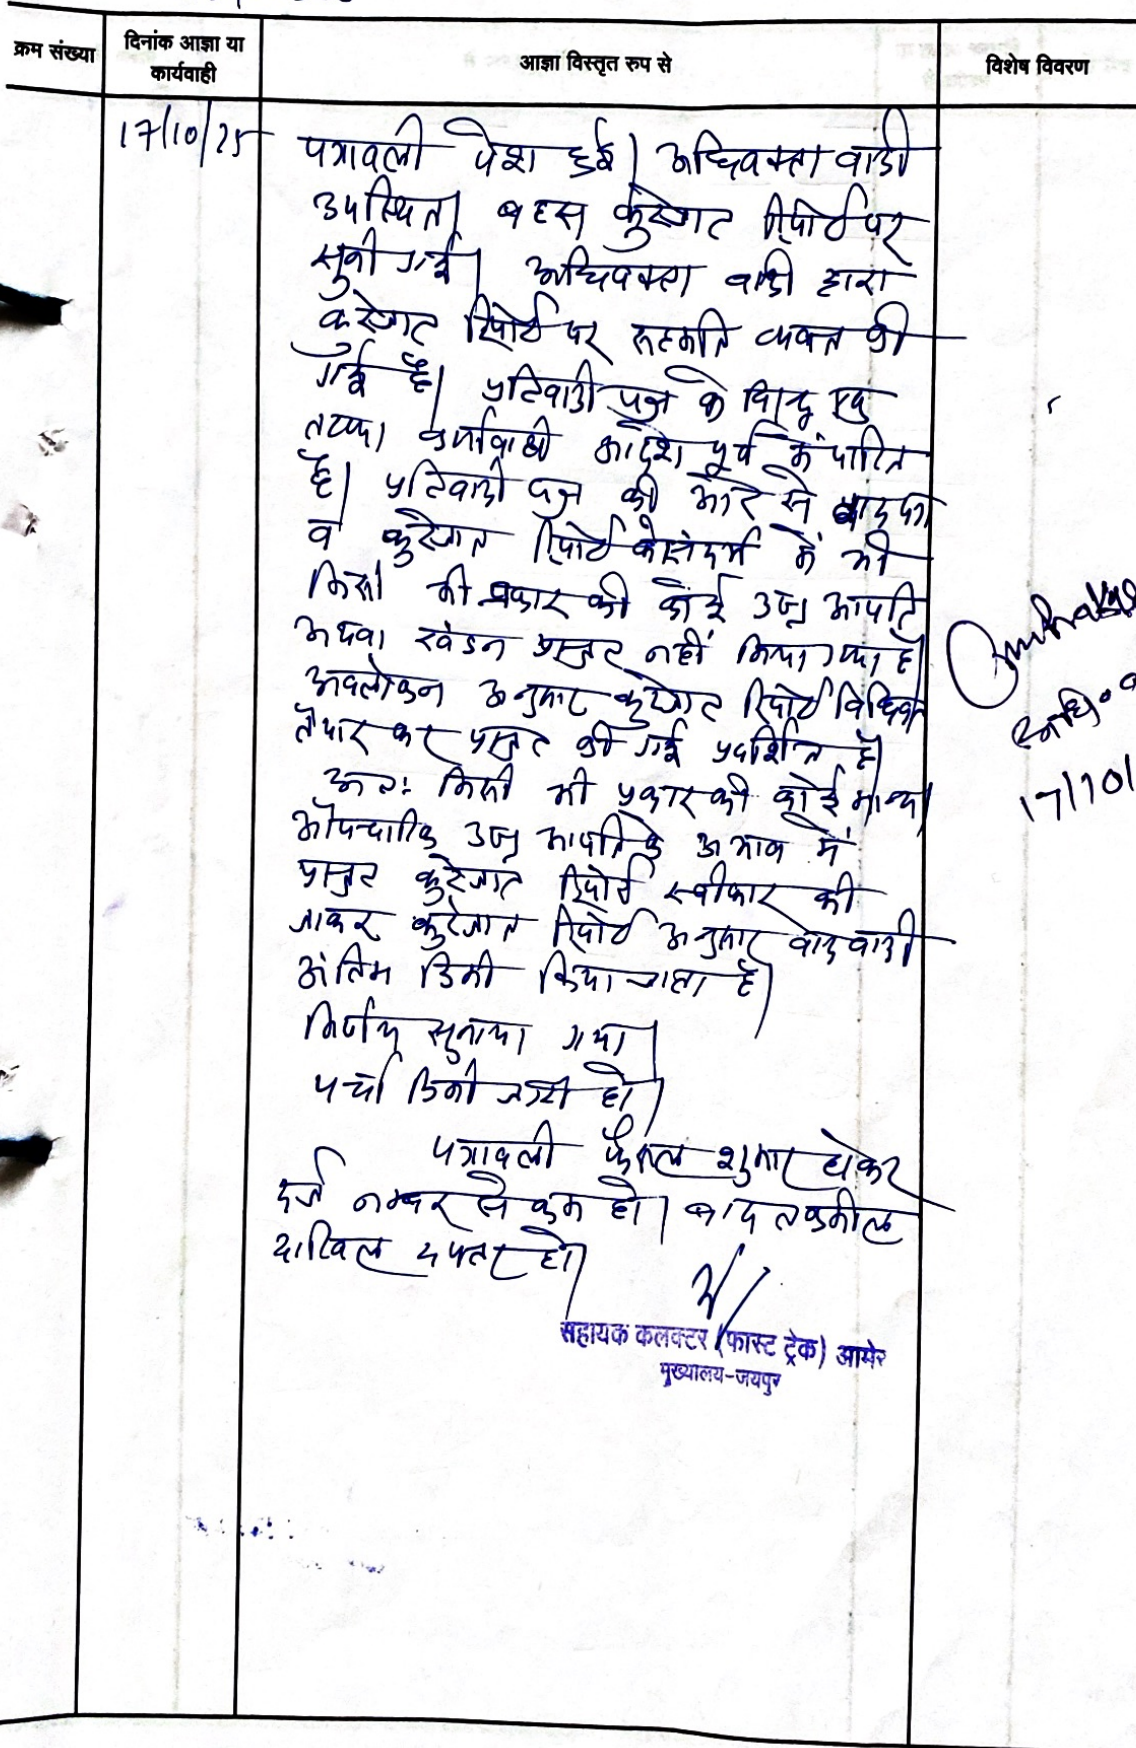 क्रम संख्या
दिनांक आज्ञा या
कार्यवाही
आज्ञा विस्तृत रुप से
विशेष विवरण
17/10/25
पत्रावली पेश हुई। अधिवक्ता वादी
उपस्थित। बहस कुर्रेजात रिपोर्ट पर
सुनी गई। अधिवक्ता वादी द्वारा
कुर्रेजात रिपोर्ट पर सहमति व्यक्त की
गई है। प्रतिवादी पक्ष के विरुद्ध एक
तरफा कार्यवाही आदेश पूर्व में पारित
है। प्रतिवादी पक्ष की ओर से वाद पत्र
व कुर्रेजात रिपोर्ट के संदर्भ में भी
किसी भी प्रकार की कोई उज्र आपत्ति
अथवा खंडन प्रस्तुत नहीं किया गया है।
अवलोकन अनुसार कुर्रेजात रिपोर्ट विधिवत
तैयार कर प्रस्तुत की गई प्रदर्शित है।
अतः किसी भी प्रकार की कोई मान्य
औपचारिक उज्र आपत्ति के अभाव में
प्रस्तुत कुर्रेजात रिपोर्ट स्वीकार की
जाकर कुर्रेजात रिपोर्ट अनुसार वाद वादी
अंतिम डिक्री किया जाता है।
निर्णय सुनाया गया।
पर्चा डिक्री जारी हो।
पत्रावली फैसल शुमार होकर
दर्ज नम्बर से कम हो। बाद तकमील
दाखिल दफ्तर हो।
सहायक कलक्टर (फास्ट ट्रेक) आमेर
मुख्यालय-जयपुर
17/10/